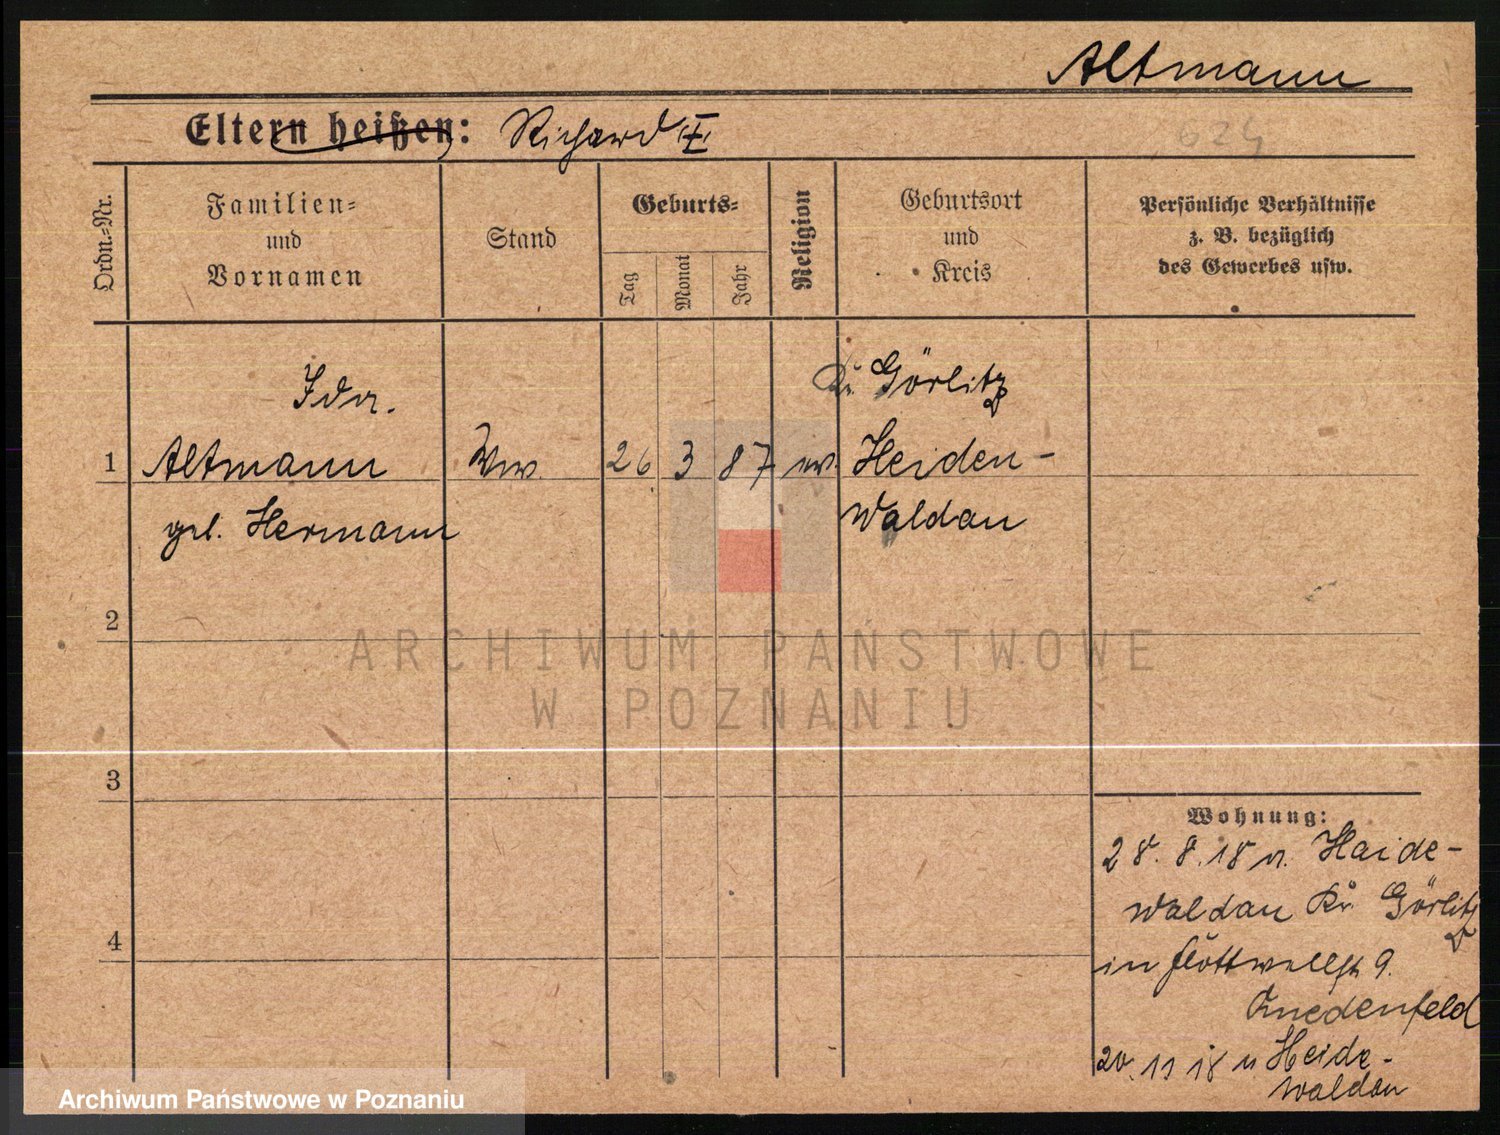 Altmann
Eltern heißen: Richard I
624
Ordn.-Nr.
Familien-
und
Vornamen
Stand
Geburts-
Tag
Monat
Jahr
Religion
Geburtsort
und
Kreis
Persönliche Verhältnisse
z. B. bezüglich
des Gewerbes usw.
Ida.
Kr. Görlitz
1 Altmann Ww. 26 3 87 ev. Heiden-
geb. Hermann Waldau
2
ARCHIWUM PAŃSTWOWE
W POZNANIU
3
Wohnung:
28. 8. 18 a. Haide-
waldau Kr. Görlitz
4
in Flottwellstr 9.
20. 11 18 n Heide-
waldau
Archiwum Państwowe w Poznaniu